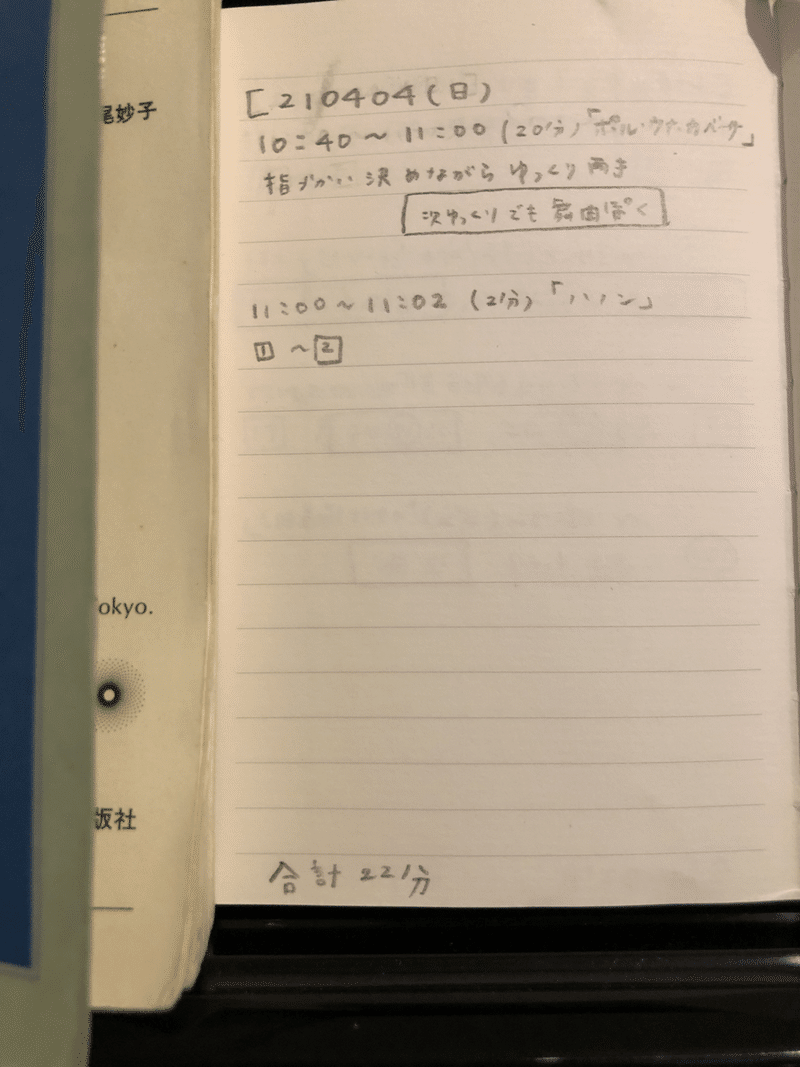 尾妙子
okyo.
版社
[210404(日)
10:40〜11:00 (20分)「ポル・ウナ・カベーサ」
指づかい決めながらゆっくり両き
次ゆっくりでも舞曲ぽく
11:00〜11:02 (2分)「ハノン」
1〜2
合計 22分